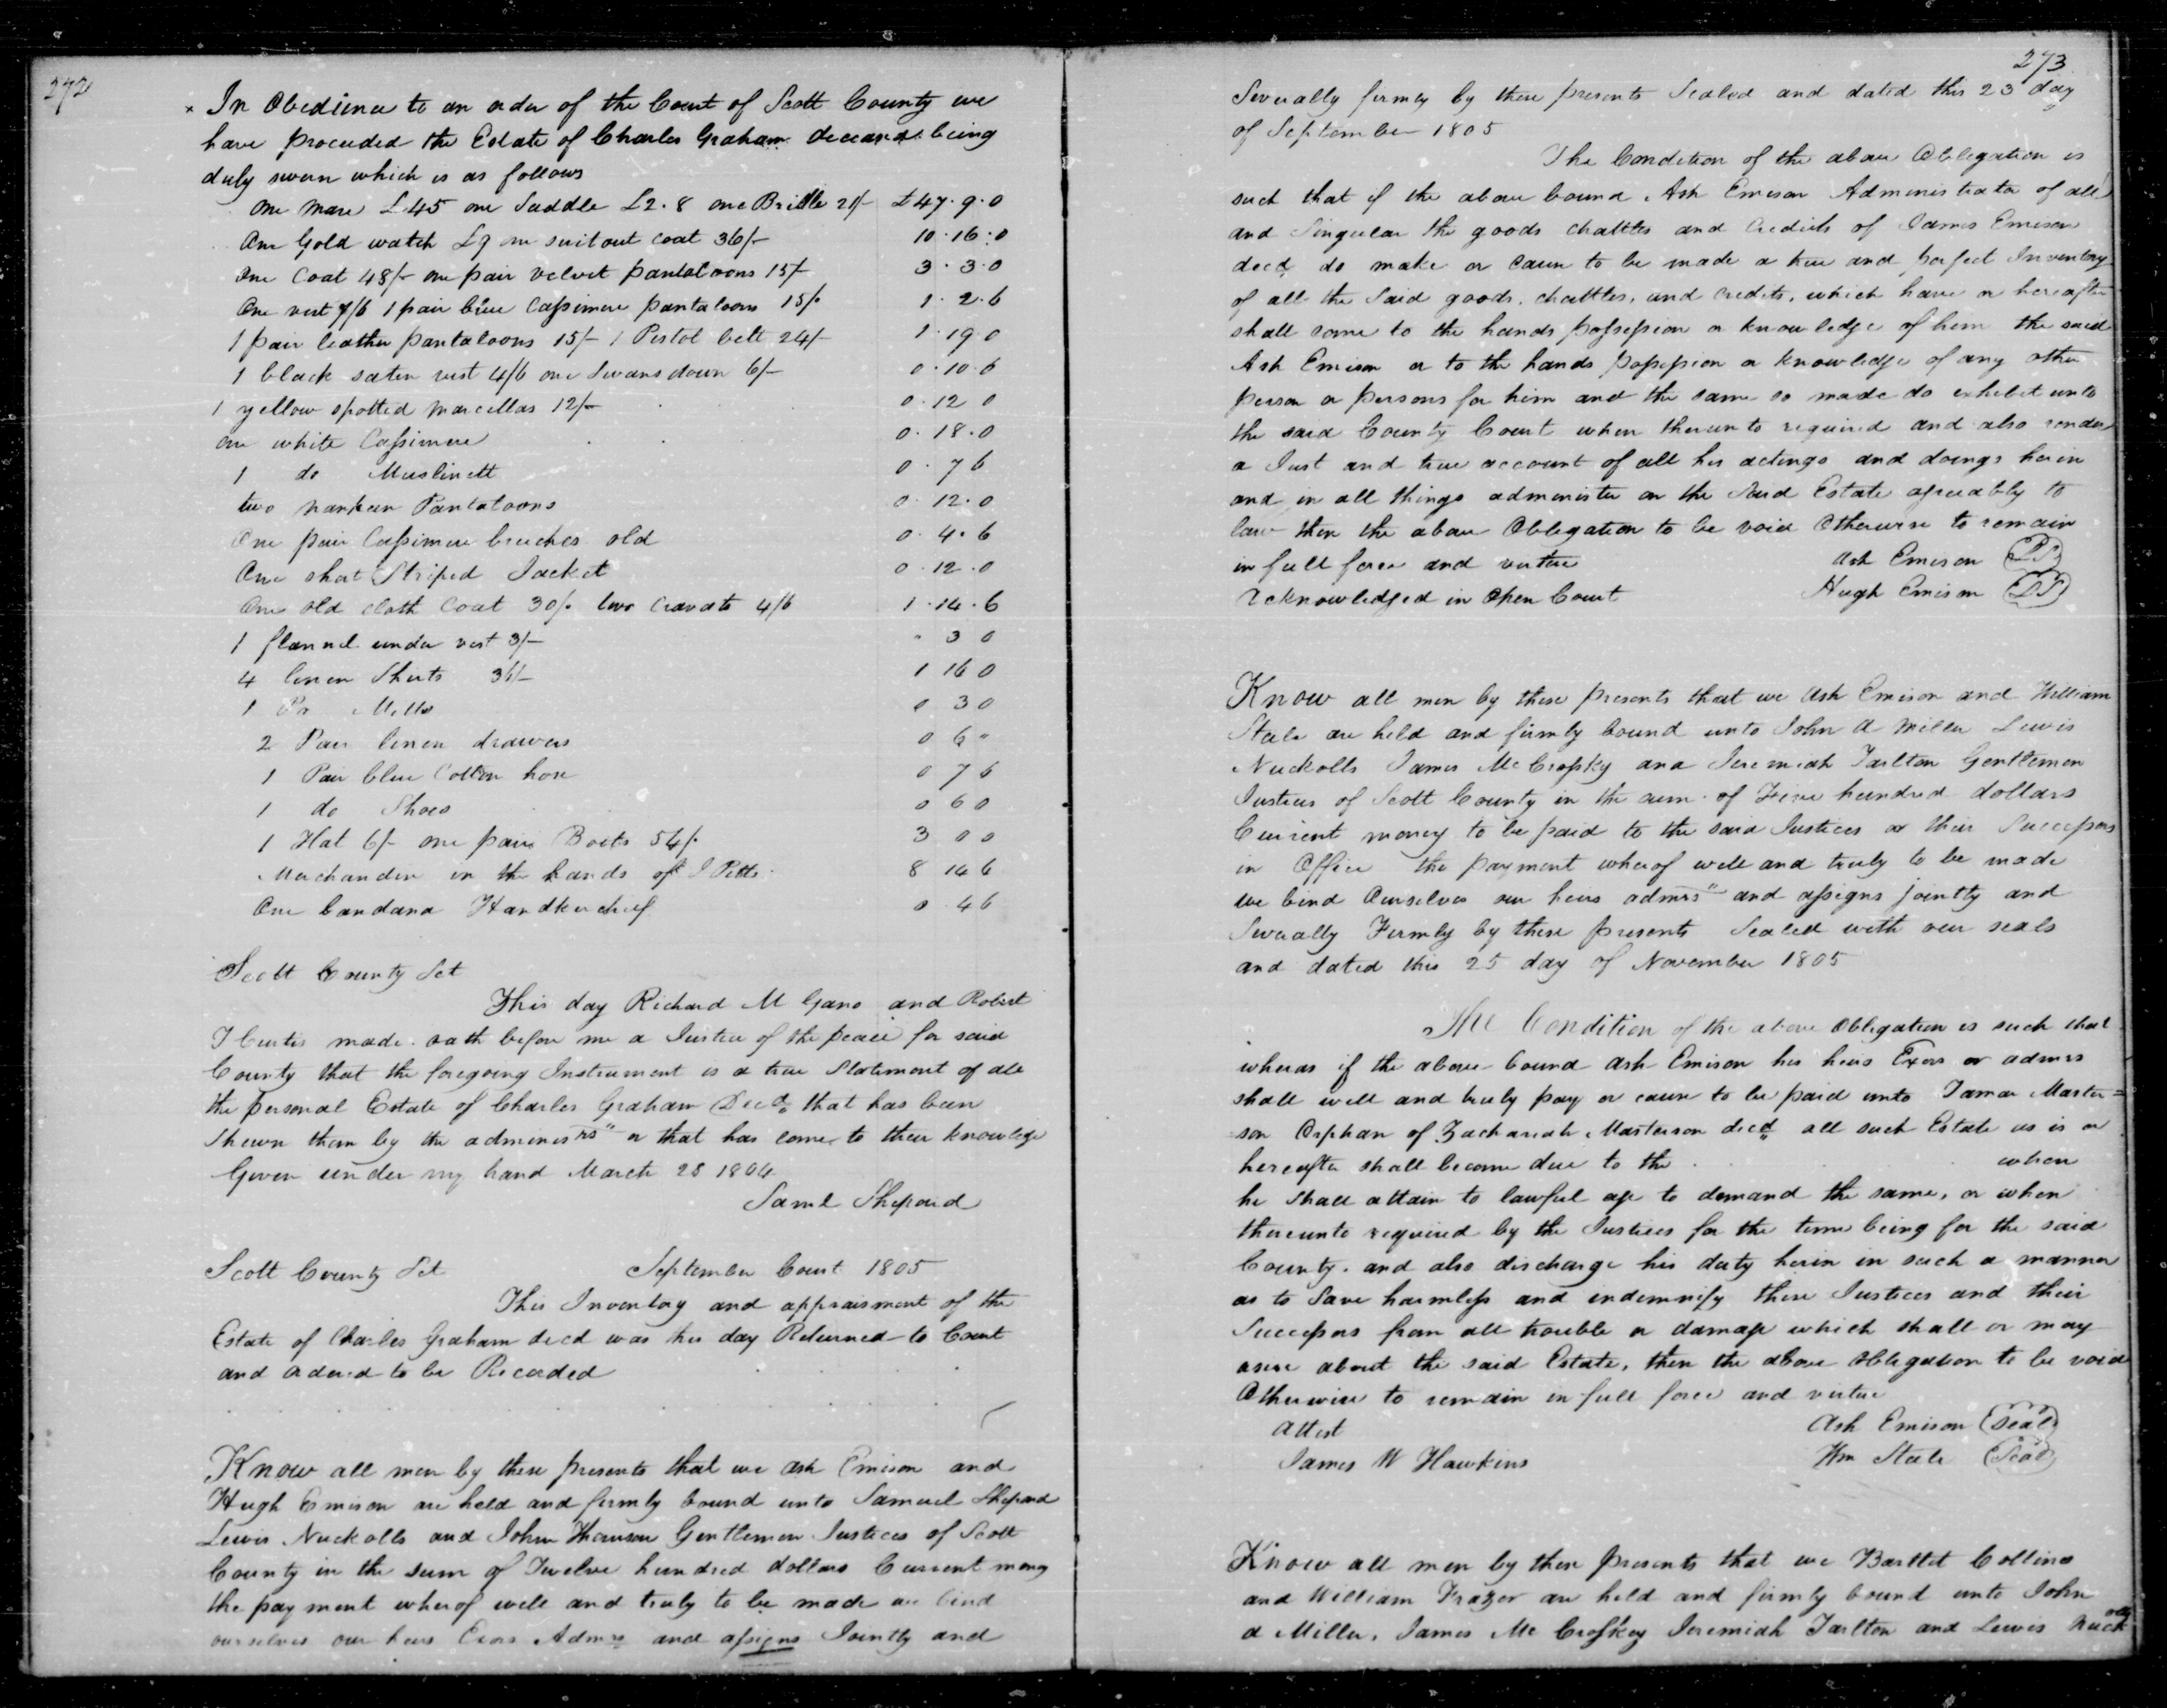 272
x In Obedience to an order of the Court of Scott County we
have proceeded the Estate of Charles Graham deceasd. being
duly sworn which is as follows
One mare £45 one Saddle £2.8 one Bridle 21/- £47.9.0
One Gold watch £9 one surtout coat 36/- 10.16.0
One Coat 48/- one pair velvet pantaloons 15/- 3.3.0
One vest 7/6 1 pair blue Cassimere pantaloons 15/. 1.2.6
1 pair leather pantaloons 15/- 1 Pistol belt 24/- 1.19.0
1 black saten vest 4/6 one Swansdown 6/- 0.10.6
1 yellow spotted marcellas 12/- 0.12 0
one white Cassimere 0.18.0
1 do Muslinett 0.7 6
two nankeen Pantaloons 0.12.0
One pair Cassimere breeches old 0.4.6
One short Striped Jacket 0.12.0
One old cloth Coat 30/. two cravats 4/6 1.14.6
1 flannel under vest 3/- " 3 0
4 linen Shirts 36/- 1 16 0
1 Pr Mitts 0 3 0
2 Pair linen drawers 0 6 "
1 Pair blue Cotton hose 0 7 6
1 do Shoes 0 6 0
1 Hat 6/- one pair Boots 54/. 3 0 0
Merchandise in the hands of J Pitts 8 14 6
One bandana Handkerchief 0 4 6
Scott County Sct
This day Richard M Gano and Robert
J Curtis made oath before me a Justice of the peace for said
County that the foregoing Instrument is a true Statement of all
the personal Estate of Charles Graham Decd. that has been
Shewn them by the administrs" or that has come to their knowledge
Given under my hand March 28 1804
Saml Shepard
Scott County Sct September Court 1805
This Inventory and appraisment of the
Estate of Charles Graham decd was this day Returned to Court
and ordered to be Recorded
Know all men by these presents that we Ash Emison and
Hugh Emison are held and firmly bound unto Samuel Shepard
Lewis Nuckolls and John Thomson Gentlemen Justices of Scott
County in the sum of Twelve hundred dollars Current money
the payment wherof well and truly to be made we bind
ourselves our heirs Exors Admrs and assigns Jointly and
273
Severally firmly by these presents Sealed and dated this 23 day
of September 1805
The Condition of the above Oblegation is
such that if the above bound Ash Emison Administrator of all
and Singular the goods chattles and Credits of James Emison
decd do make or cause to be made a true and perfect Inventory
of all the Said goods, chattles, and credits, which have or hereafter
shall come to the hands possession or knowledge of him the said
Ash Emison or to the hands possession or knowledge of any other
person or persons for him and the same so made do exhibit unto
the said County Court when therunto required and also render
a Just and true account of all his actings and doings herin
and in all things administer on the Said Estate agreeably to
law then the above Oblegation to be void Otherwise to remain
in full force and virtue Ash Emison
Acknowledged in Open Court Hugh Emison
Know all men by these presents that we Ash Emison and William
Steele are held and firmly bound unto John A Miller Lewis
Nuckolls James McCrosky and Jeremiah Tarlton Gentlemen
Justices of Scott County in the sum of Five hundred dollars
Current money to be paid to the said Justices or their Successors
in Office the payment wherof well and truly to be made
we bind Ourselves our heirs admrs" and assigns jointly and
Severally Firmly by these presents Sealed with our seals
and dated this 25 day of November 1805
The Condition of the above Obligation is such that
wheras if the above bound Ash Emison his heirs Exors or admrs
shall well and truly pay or cause to be paid unto Tamar Master=
=son Orphan of Zachariah Masterson decd all such Estate as is or
hereafter shall become due to the when
he Shall attain to lawful age to demand the same, or when
thereunto required by the Justices for the time being for the said
County. and also discharge his duty herin in such a manner
as to Save harmless and indemnify these Justices and their
Successors from all trouble or damage which shall or may
arise about the said Estate, then the above Obligation to be void
Otherwise to remain in full force and virtue
Attest Ash Emison Seal
James W Hawkins Wm Steele Seal
Know all men by these presents that we Bartlet Collins
and William Frazer are held and firmly bound unto John
A Miller, James McCroskey Jeremiah Tarlton and Lewis Nuckolls